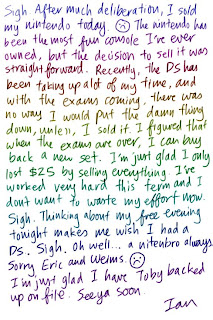 Sigh. After much deliberation, I sold
my nintendo today. ☹ The nintendo has
been the most fun console I've ever
owned, but the decision to sell it was
straightforward. Recently, the DS has
been taking up alot of my time, and
with the exams coming, there was
no way I would put the damn thing
down, unless I sold it. I figured that
when the exams are over, I can buy
back a new set. I'm just glad I only
lost $25 by selling everything. I've
worked very hard this term and I
dont want to waste my effort now.
Sigh. Thinking about my free evening
tonight makes me wish I had a
DS. Sigh. Oh well... a nitenbro always
Sorry Eric and Weims. ☹
I'm just glad I have Toby backed
up on file. Seeya soon.
Ian